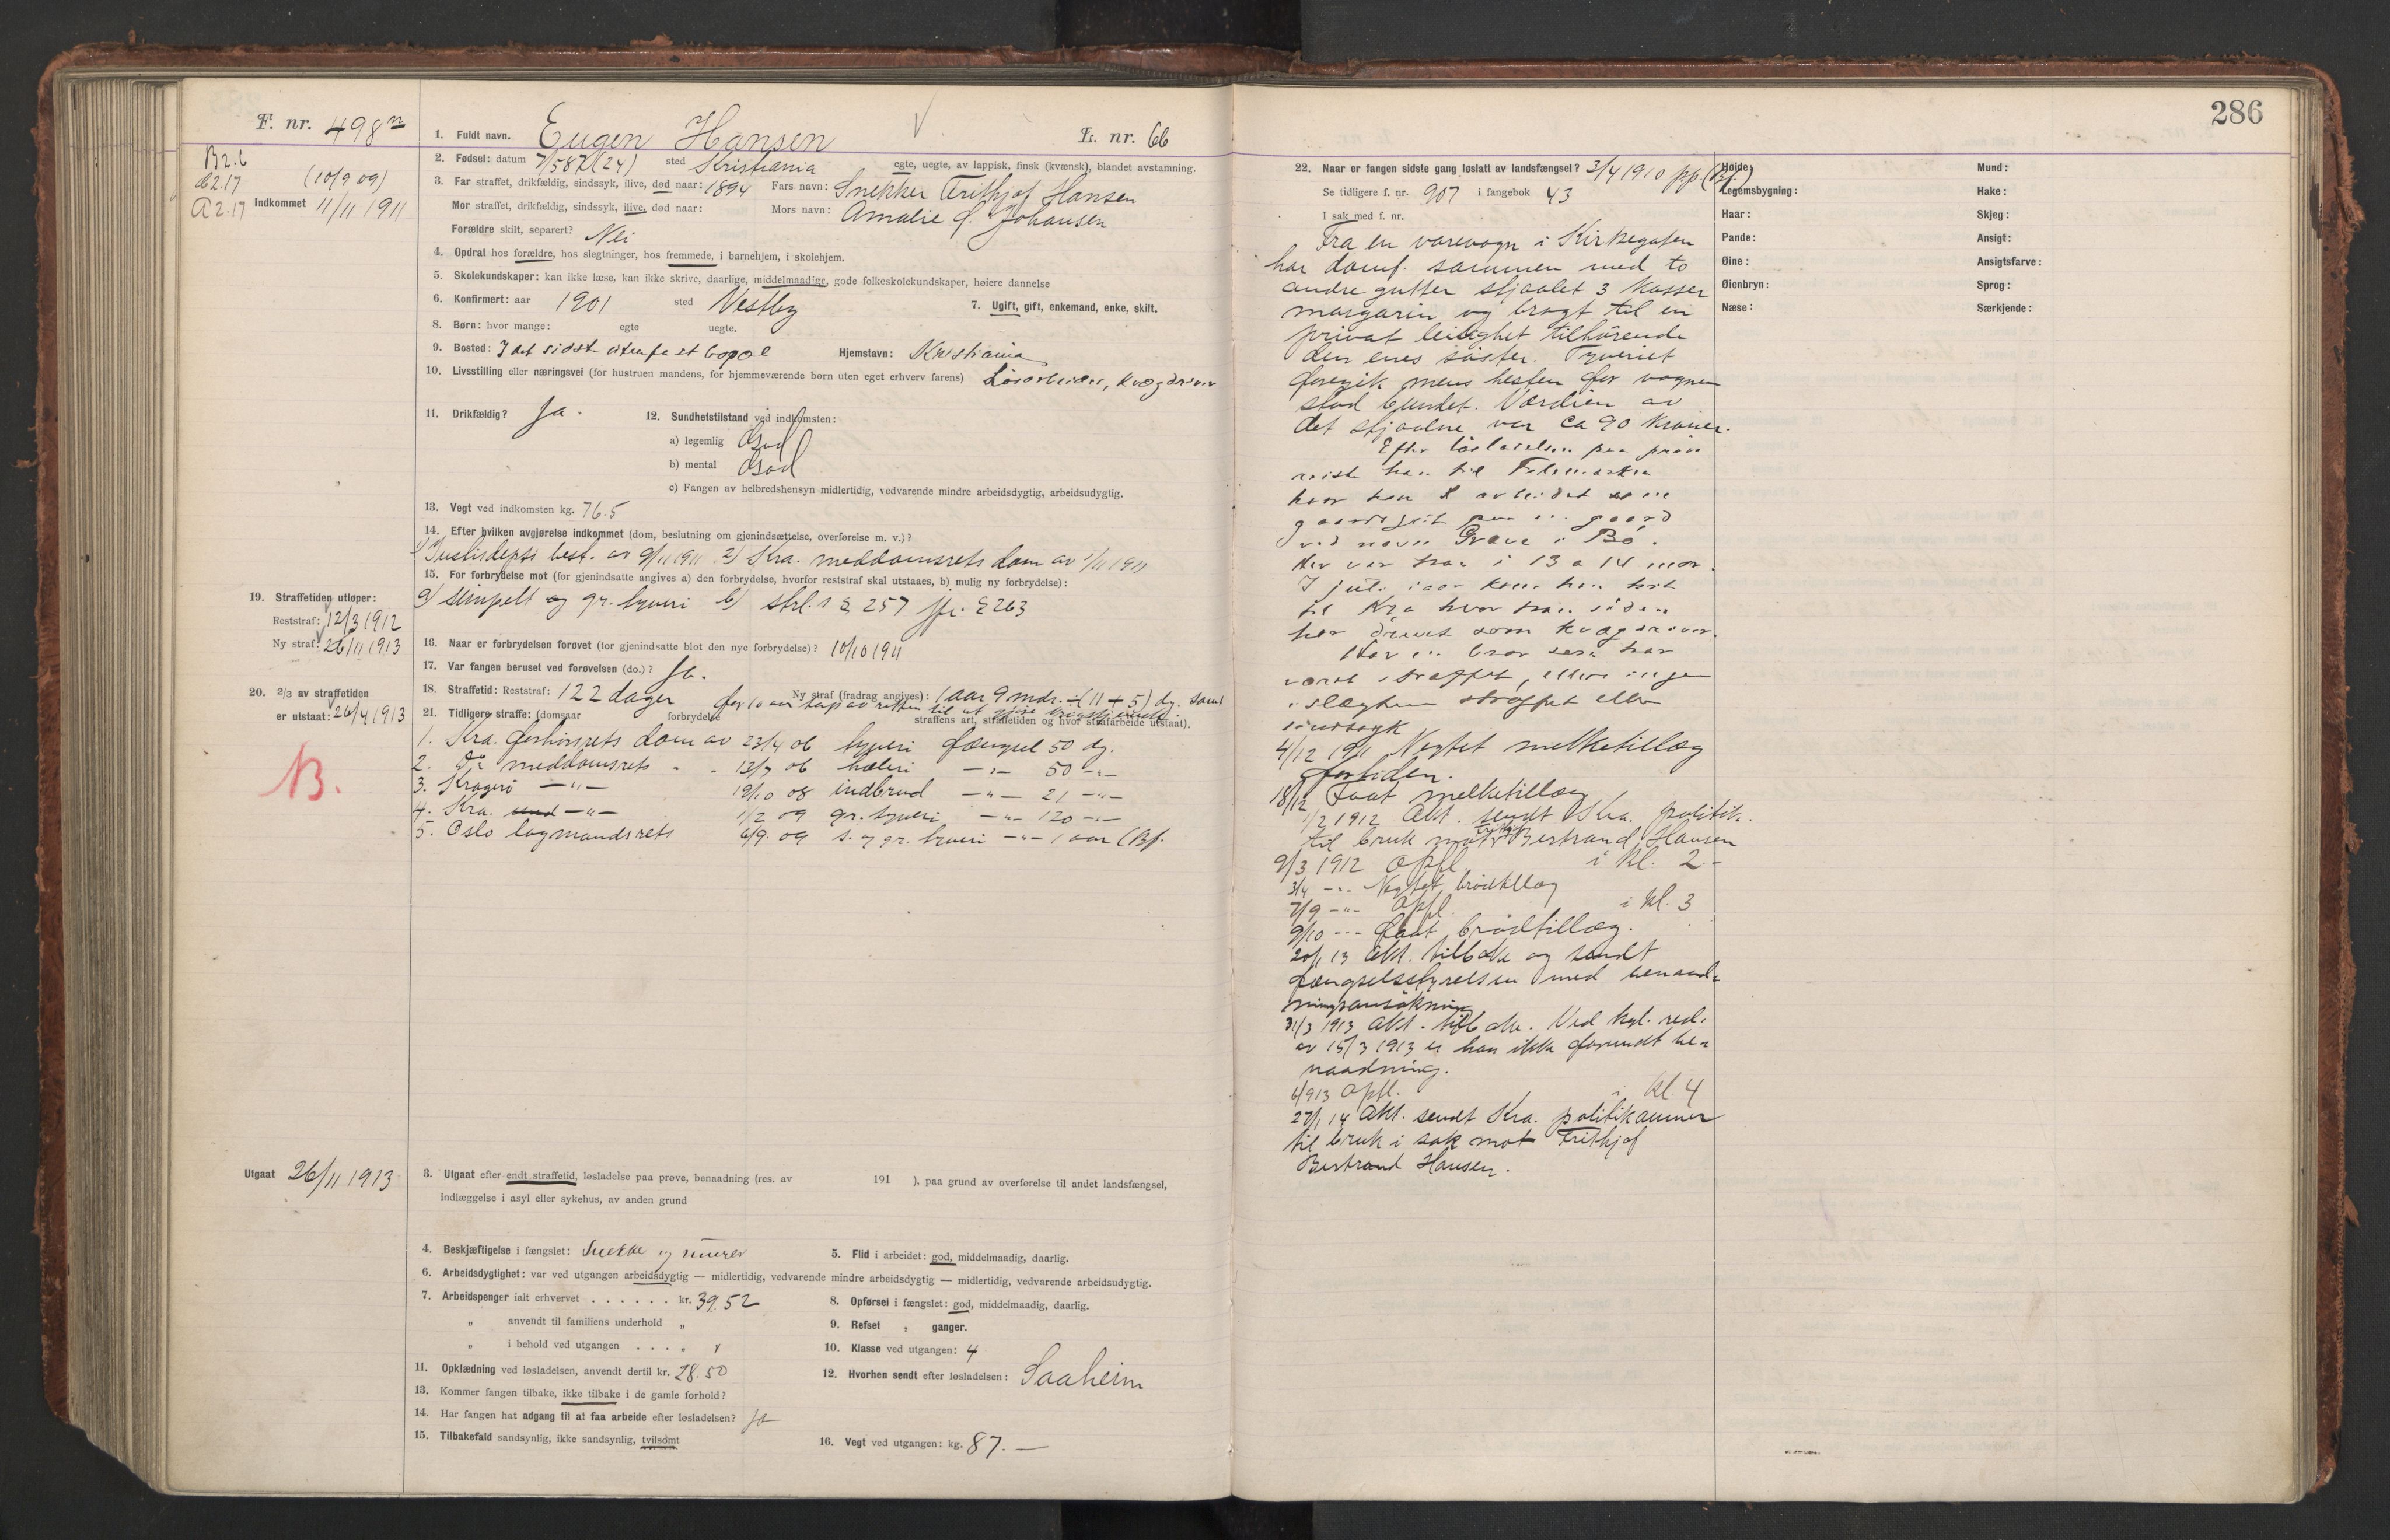 286
F. nr. 498
B2.6
b2.17 (10/9 09)
A2.17 Indkommet 11/11 1911
1. Fuldt navn. Eugen Hansen L. nr. 66
2. Fødsel: datum 7/5 87 (24) sted Kristiania egte, uegte, av lappisk, finsk (kvænsk), blandet avstamning.
3. Far straffet, drikfældig, sindssyk, ilive, død naar: 1894 Fars navn: Snekker Frithjof Hansen
Mor straffet, drikfældig, sindssyk, ilive, død naar: Mors navn: Amalie f. Johansen
Forældre skilt, separert? Nei
4. Opdrat hos forældre, hos slegtninger, hos fremmede, i barnehjem, i skolehjem.
5. Skolekundskaper: kan ikke læse, kan ikke skrive, daarlige, middelmaadige, gode folkeskolekundskaper, høiere dannelse
6. Konfirmert: aar 1901 sted Vestby 7. Ugift, gift, enkemand, enke, skilt.
8. Børn: hvor mange: egte uegte.
9. Bosted: I det sidste uten fast bopæl Hjemstavn: Kristiania
10. Livsstilling eller næringsvei (for hustruen mandens, for hjemmeværende børn uten eget erhverv farens) Løsarbeider, kvægdriver
11. Drikfældig? Ja. 12. Sundhetstilstand ved indkomsten:
a) legemlig God
b) mental God
c) Fangen av helbredshensyn midlertidig, vedvarende mindre arbeidsdygtig, arbeidsudygtig.
13. Vegt ved indkomsten kg. 76.5
14. Efter hvilken avgjørelse indkommet (dom, beslutning om gjenindsættelse, overførelse m. v.)?
1) Justisdepts best. av 9/11 1911 2) Kra. meddomsrets dom av 1/11 1911
15. For forbrydelse mot (for gjenindsatte angives a) den forbrydelse, hvorfor reststraf skal utstaaes, b) mulig ny forbrydelse):
a) simpelt og gr. tyveri b) strl.s § 257 jfr. § 263
19. Straffetiden utløper:
Reststraf: 12/3 1912
Ny straf: 26/11 1913
16. Naar er forbrydelsen forøvet (for gjenindsatte blot den nye forbrydelse)? 10/10 1911
17. Var fangen beruset ved forøvelsen (do.)? Ja.
18. Straffetid: Reststraf: 122 dager Ny straf (fradrag angives): 1 aar 9 mdr. ÷ (11 + 5) dg. samt
for 10 aar tap av retten til at gjøre krigstjeneste
20. 2/3 av straffetiden
er utstaat: 26/4 1913
21. Tidligere straffe: (domsaar forbrydelse straffens art, straffetiden og hvor strafarbeide utstaat).
B.
1. Kra. forhørsrets dom av 23/4 06 tyveri fængsel 50 dg.
2. Do meddomsrets - - 13/7 06 hæleri -"- 50 -"-
3. Kragerø -"- 19/10 08 indbrud -"- 21 -"-
4. Kra. -"- 1/2 09 gr. tyveri -"- 120 -"-
5. Oslo lagmandsrets 6/9. 09 s. og gr. tyveri -"- 1 aar (Bf.
Utgaat 26/11 1913
3. Utgaat efter endt straffetid, løsladelse paa prøve, benaadning (res. av 191 ), paa grund av overførelse til andet landsfængsel,
indlæggelse i asyl eller sykehus, av anden grund
4. Beskjæftigelse i fængslet: Snekker og murer 5. Flid i arbeidet: god, middelmaadig, daarlig.
6. Arbeidsdygtighet: var ved utgangen arbeidsdygtig — midlertidig, vedvarende mindre arbeidsdygtig — midlertidig, vedvarende arbeidsudygtig.
7. Arbeidspenger ialt erhvervet . . . . . . kr. 39.52 8. Opførsel i fængslet: god, middelmaadig, daarlig.
„ anvendt til familiens underhold „ 9. Refset „ ganger.
„ i behold ved utgangen . . . „ 10. Klasse ved utgangen: 4
11. Opklædning ved løsladelsen, anvendt dertil kr. 28.50 12. Hvorhen sendt efter løsladelsen: Saaheim
13. Kommer fangen tilbake, ikke tilbake i de gamle forhold?
14. Har fangen hat adgang til at faa arbeide efter løsladelsen? Ja
15. Tilbakefald sandsynlig, ikke sandsynlig, tvilsomt 16. Vegt ved utgangen: kg. 87.—
22. Naar er fangen sidste gang løslatt av landsfængsel? 3/4 1910 pp (Bf.)
Se tidligere f. nr. 907 i fangebok 43
I sak med f. nr.
Fra en varevogn i Kirkegaten
har domf. sammen med to
andre gutter stjaalet 3 kasser
margarin og bragt til en
privat leilighet tilhørende
den enes søster. Tyveriet
foregik mens hesten for vognen
stod bundet. Værdien av
det stjaalne var ca 90 kroner.
Efter løsladelsen paa prøve
reiste han til Telemarken
hvor han arbeidet som
gaardsgut paa en gaard
ved navn Grave i Bø.
Her var han i 13 a 14 mdr.
I juli iaar kom han hit
til Kra hvor han siden
har drevet som kvægdriver.
Har en bror som har
været straffet, ellers ingen
i slægten straffet eller
sindssyk
4/12 1911 Negtet melketillæg
fortiden.
18/12 Faat melketillæg
1/2 1912 Akt. sendt Kra. politik.
til bruk mot Bertrand Hansen
9/3 1912 Opfl. i kl. 2.-
3/4 -"- Negtet brødtillæg
7/9 -"- Opfl. i kl. 3
9/10 -"- faat brødtillæg.
20/1 13 Akt. tilbake og sendt
fængselsstyrelsen med benaad-
ningsansøkning
31/3 1913 Akt. tilbake. Ved kgl. res.
av 15/3 1913 er han ikke forundt be-
naadning.
6/9 13 Opfl. i kl. 4
27/1 14 Akt. sendt Kra. politikammer
til bruk i sak mot Frithjof
Bertrand Hansen.
Høide:
Legemsbygning:
Haar:
Pande:
Øine:
Øienbryn:
Næse:
Mund:
Hake:
Skjeg:
Ansigt:
Ansigtsfarve:
Sprog:
Særkjende: